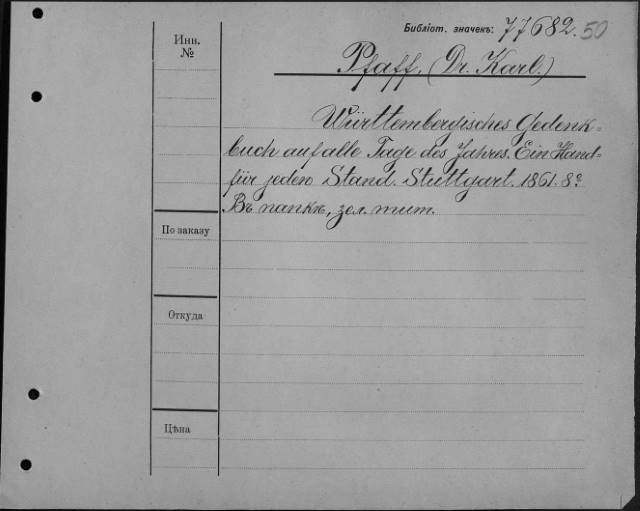 Библіот. значекъ: 77682.50
Инв.
№
Pfaff, (Dr. Karl.)
Württembergisches Gedenk=
buch auf alle Tage des Jahres. Ein Hand=
für jeden Stand. Stuttgart. 1861. 8º
Въ папкѣ, зел. тит.
По заказу
Откуда
Цѣна